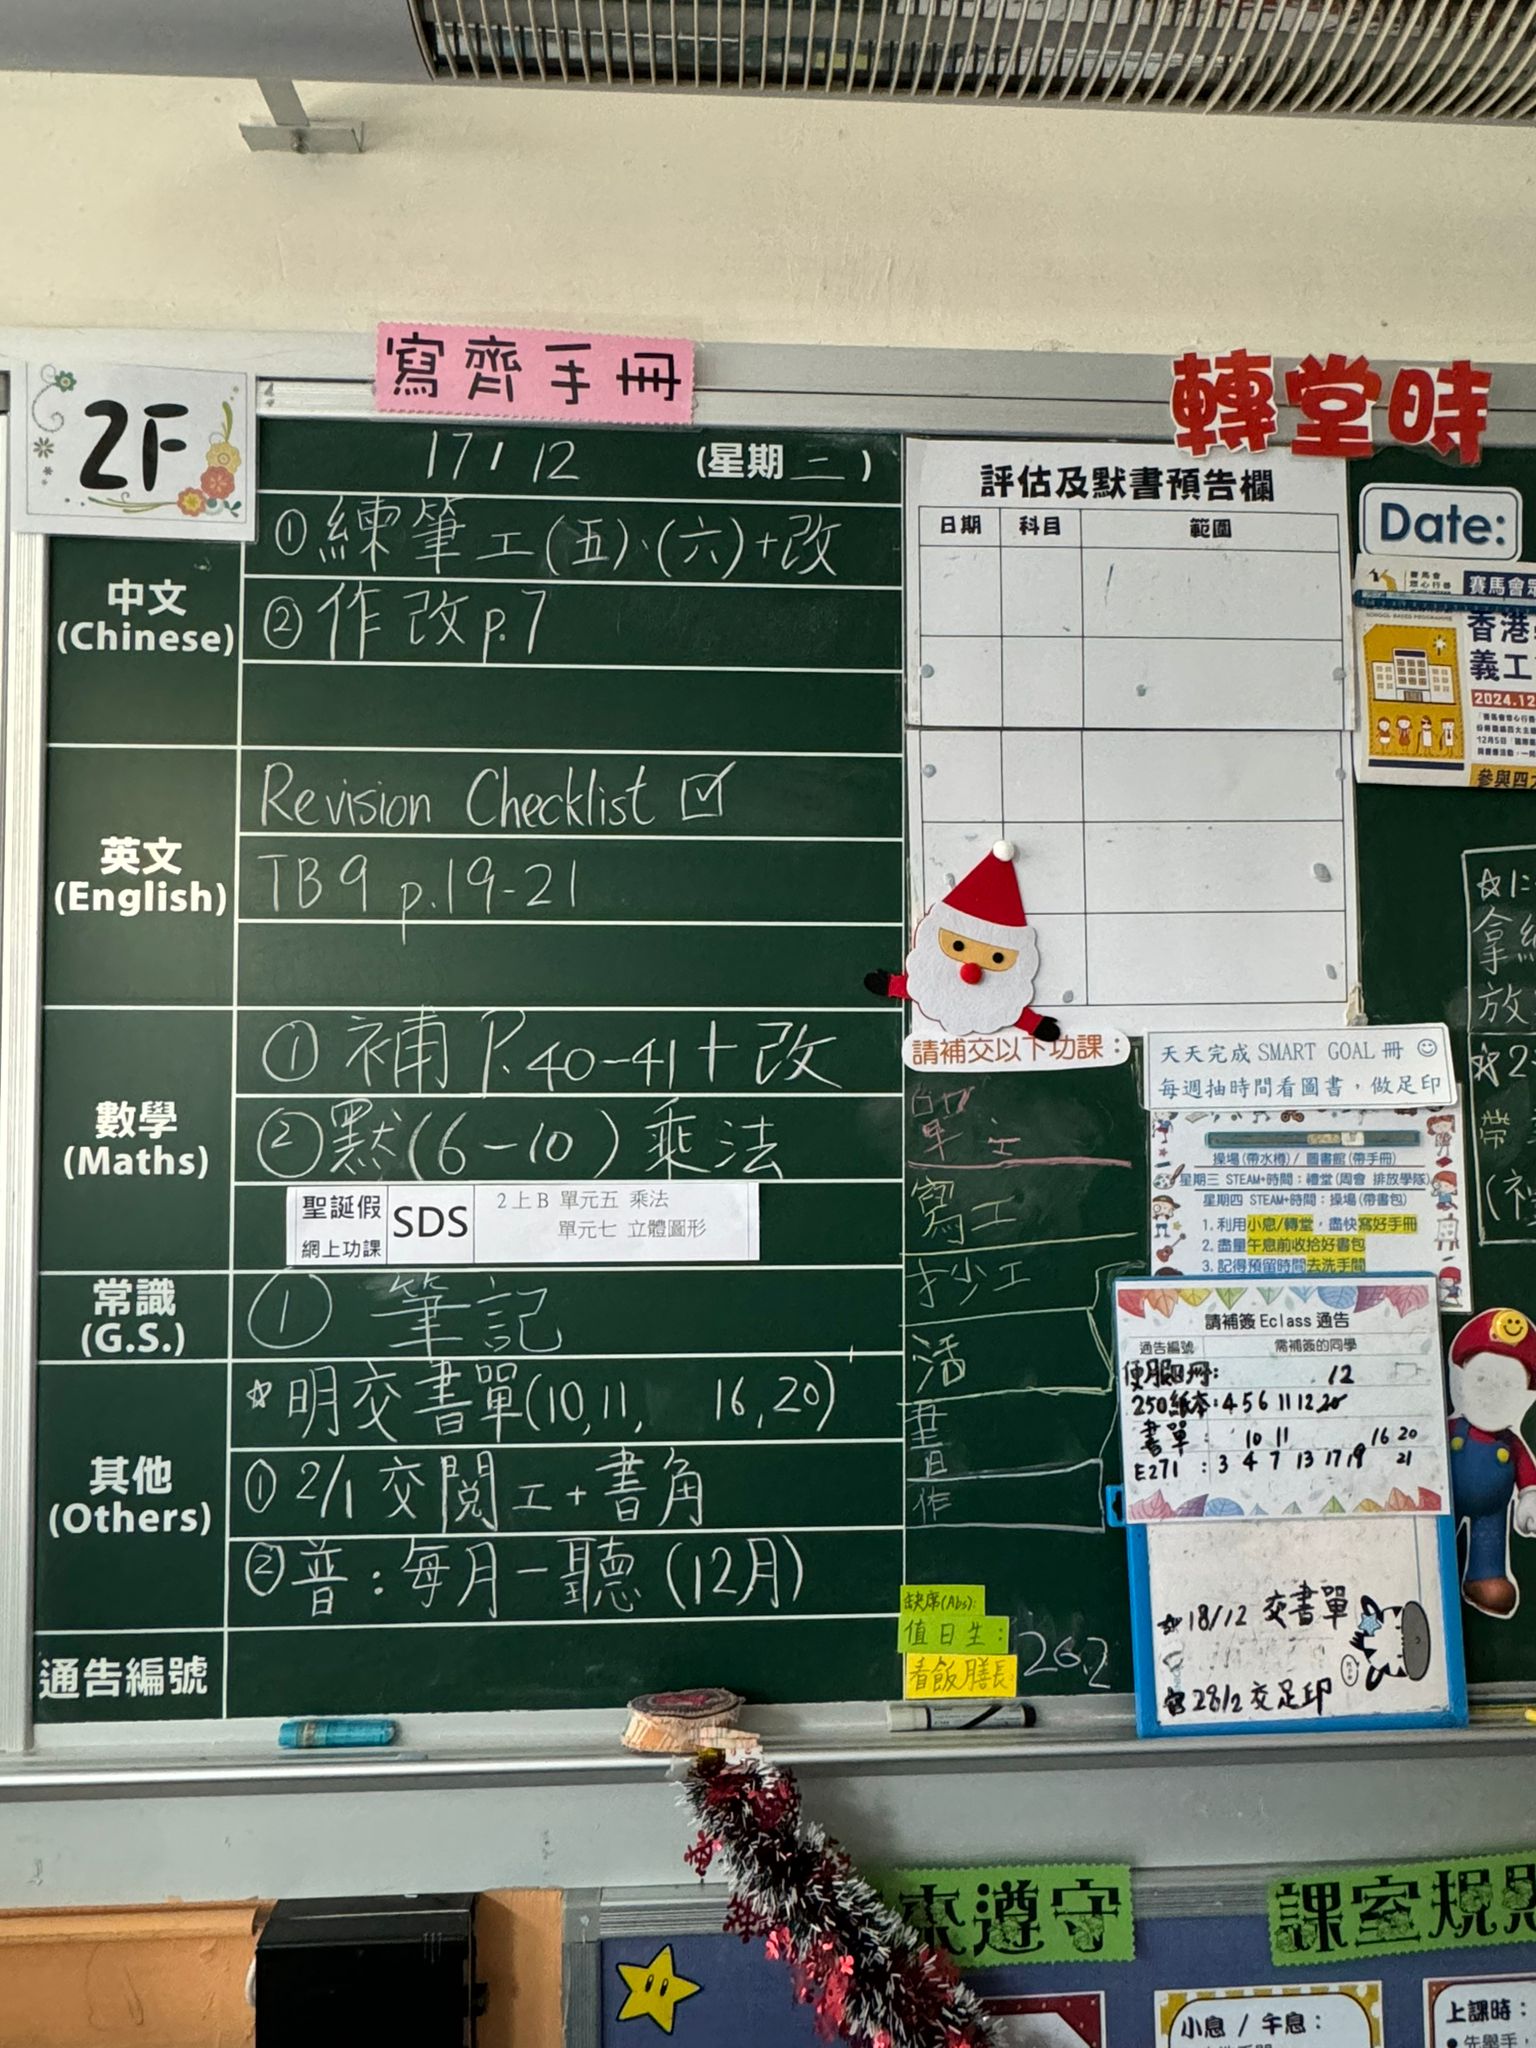 寫齊手冊
轉堂時
2F
17 / 12 (星期二)
中文
(Chinese)
① 練筆工(五)、(六)+改
② 作改p.7
英文
(English)
Revision Checklist ☑
TB9 p.19-21
數學
(Maths)
① 補 P.40-41+改
② 默(6-10) 乘法
聖誕假
網上功課
SDS
2上B 單元五 乘法
單元七 立體圖形
常識
(G.S.)
① 筆記
其他
(Others)
☆明交書單(10,11, 16,20)
① 2/1 交閱工+書角
② 普:每月一聽(12月)
通告編號
評估及默書預告欄
日期 科目 範圍
請補交以下功課:
寫工
抄工
活
作
缺席(Abs):
值日生:
看飯膳長
26,2
Date:
賽馬會
香港
義工
2024.12
參與四
天天完成 SMART GOAL 冊 ☺
每週抽時間看圖書,做足印
操場(帶水樽)/ 圖書館(帶手冊)
星期三 STEAM+時間:禮堂(周會 排放學隊)
星期四 STEAM+時間:操場(帶書包)
1. 利用小息/轉堂,盡快寫好手冊
2. 盡量午息前收拾好書包
3. 記得預留時間去洗手間
請補簽 Eclass 通告
通告編號 需補簽的同學
便服日冊: 12
250紙本: 4 5 6 11 12 20
書單: 10 11 16 20
E271: 3 4 7 13 17 19 21
☆18/12 交書單
☆28/2 交足印
拿
放
帶
來遵守
課室規
小息 / 午息:
上課時:
先舉手,